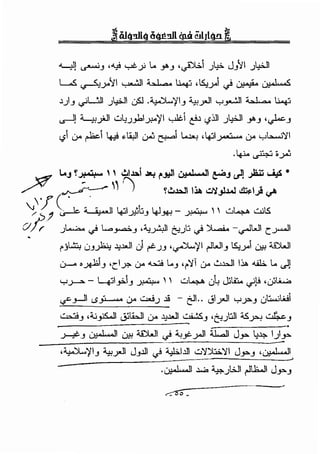 حوارات في الدعوة والدولة
الخيار الأول خيار أخلاقي، وهو ما نرغب فيه، ونسعى إليه
كمسلمين مقيمين في أمريكا، تهمنا مصلحة الشعب الأمريكي كما
تهمنا مصلحة الشعوب العربية والإسلامية. لكن الخيار الثاني وارد
وعملي، وهو الخيار الذي دفع أغلب الإمبراطوريات الغربية إلى
الانسحاب من مستعمراتها، بعدما اتضح أن ثمن البقاء فيها أعظم من أي
ثمرة تجتنى منها.
* كيف تنظر إلى وضع المسلمين اليوم بعد أحداث ١١ سبتمبر؟ وما
هي قراءتك لمدلولات هذا الحدث؟
كانت هجمات ١١ سبتمبر – بهولها وتأثيراتها العميقة على
المسرح العالمي- مفصلا في تاريخ البشرية، وخصوصا في مجمل
العلاقة بين أمريكا والعالم الإسلامي، ورغم أن العديد ينظرون بتشاؤم
إلى ما خلفه هذا الحدث من آلام، وما فتحه من جراح، وأظهره من
أحقاد، فإني متفائل بأن هجمات ١١ سبتمبر وأخواتها – حرب
أفغانستان وحرب العراق.. الخ – قد تسفر عن مستوى من الوعي
وعجلت بحركة التاريخ، وكشفت العديد من الحقائق المكنونة، وفتحت
حوارا جديا حول الصلة المرغوبة في العلاقة بين المسلمين وغير
المسلمين، وحول الاختلالات الداخلية في الدول العربية والإسلامية،
وحول المظالم الخارجية ضد المسلمين.